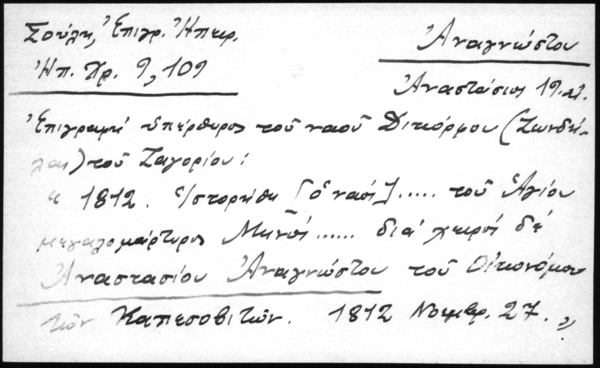 Σούλη, Ἐπιγρ. Ἠπειρ.
Ἠπ. Χρ. 9, 109
Ἀναγνώστου
Ἀναστάσιος 19. αἰ.
Ἐπιγραφή ὑπέρθυρος τοῦ ναοῦ Δικόρφου (Ζωνδή-
λας) τοῦ Ζαγορίου:
" 1812. Ἱστορήθη [ὁ ναός] ..... τοῦ Ἁγίου
μεγαλομάρτυρος Μηνᾶ ...... διά χειρός δέ
Ἀναστασίου Ἀναγνώστου τοῦ Οἰκονόμου
τῶν Καπεσοβιτῶν. 1812 Νοεμβρ. 27. "